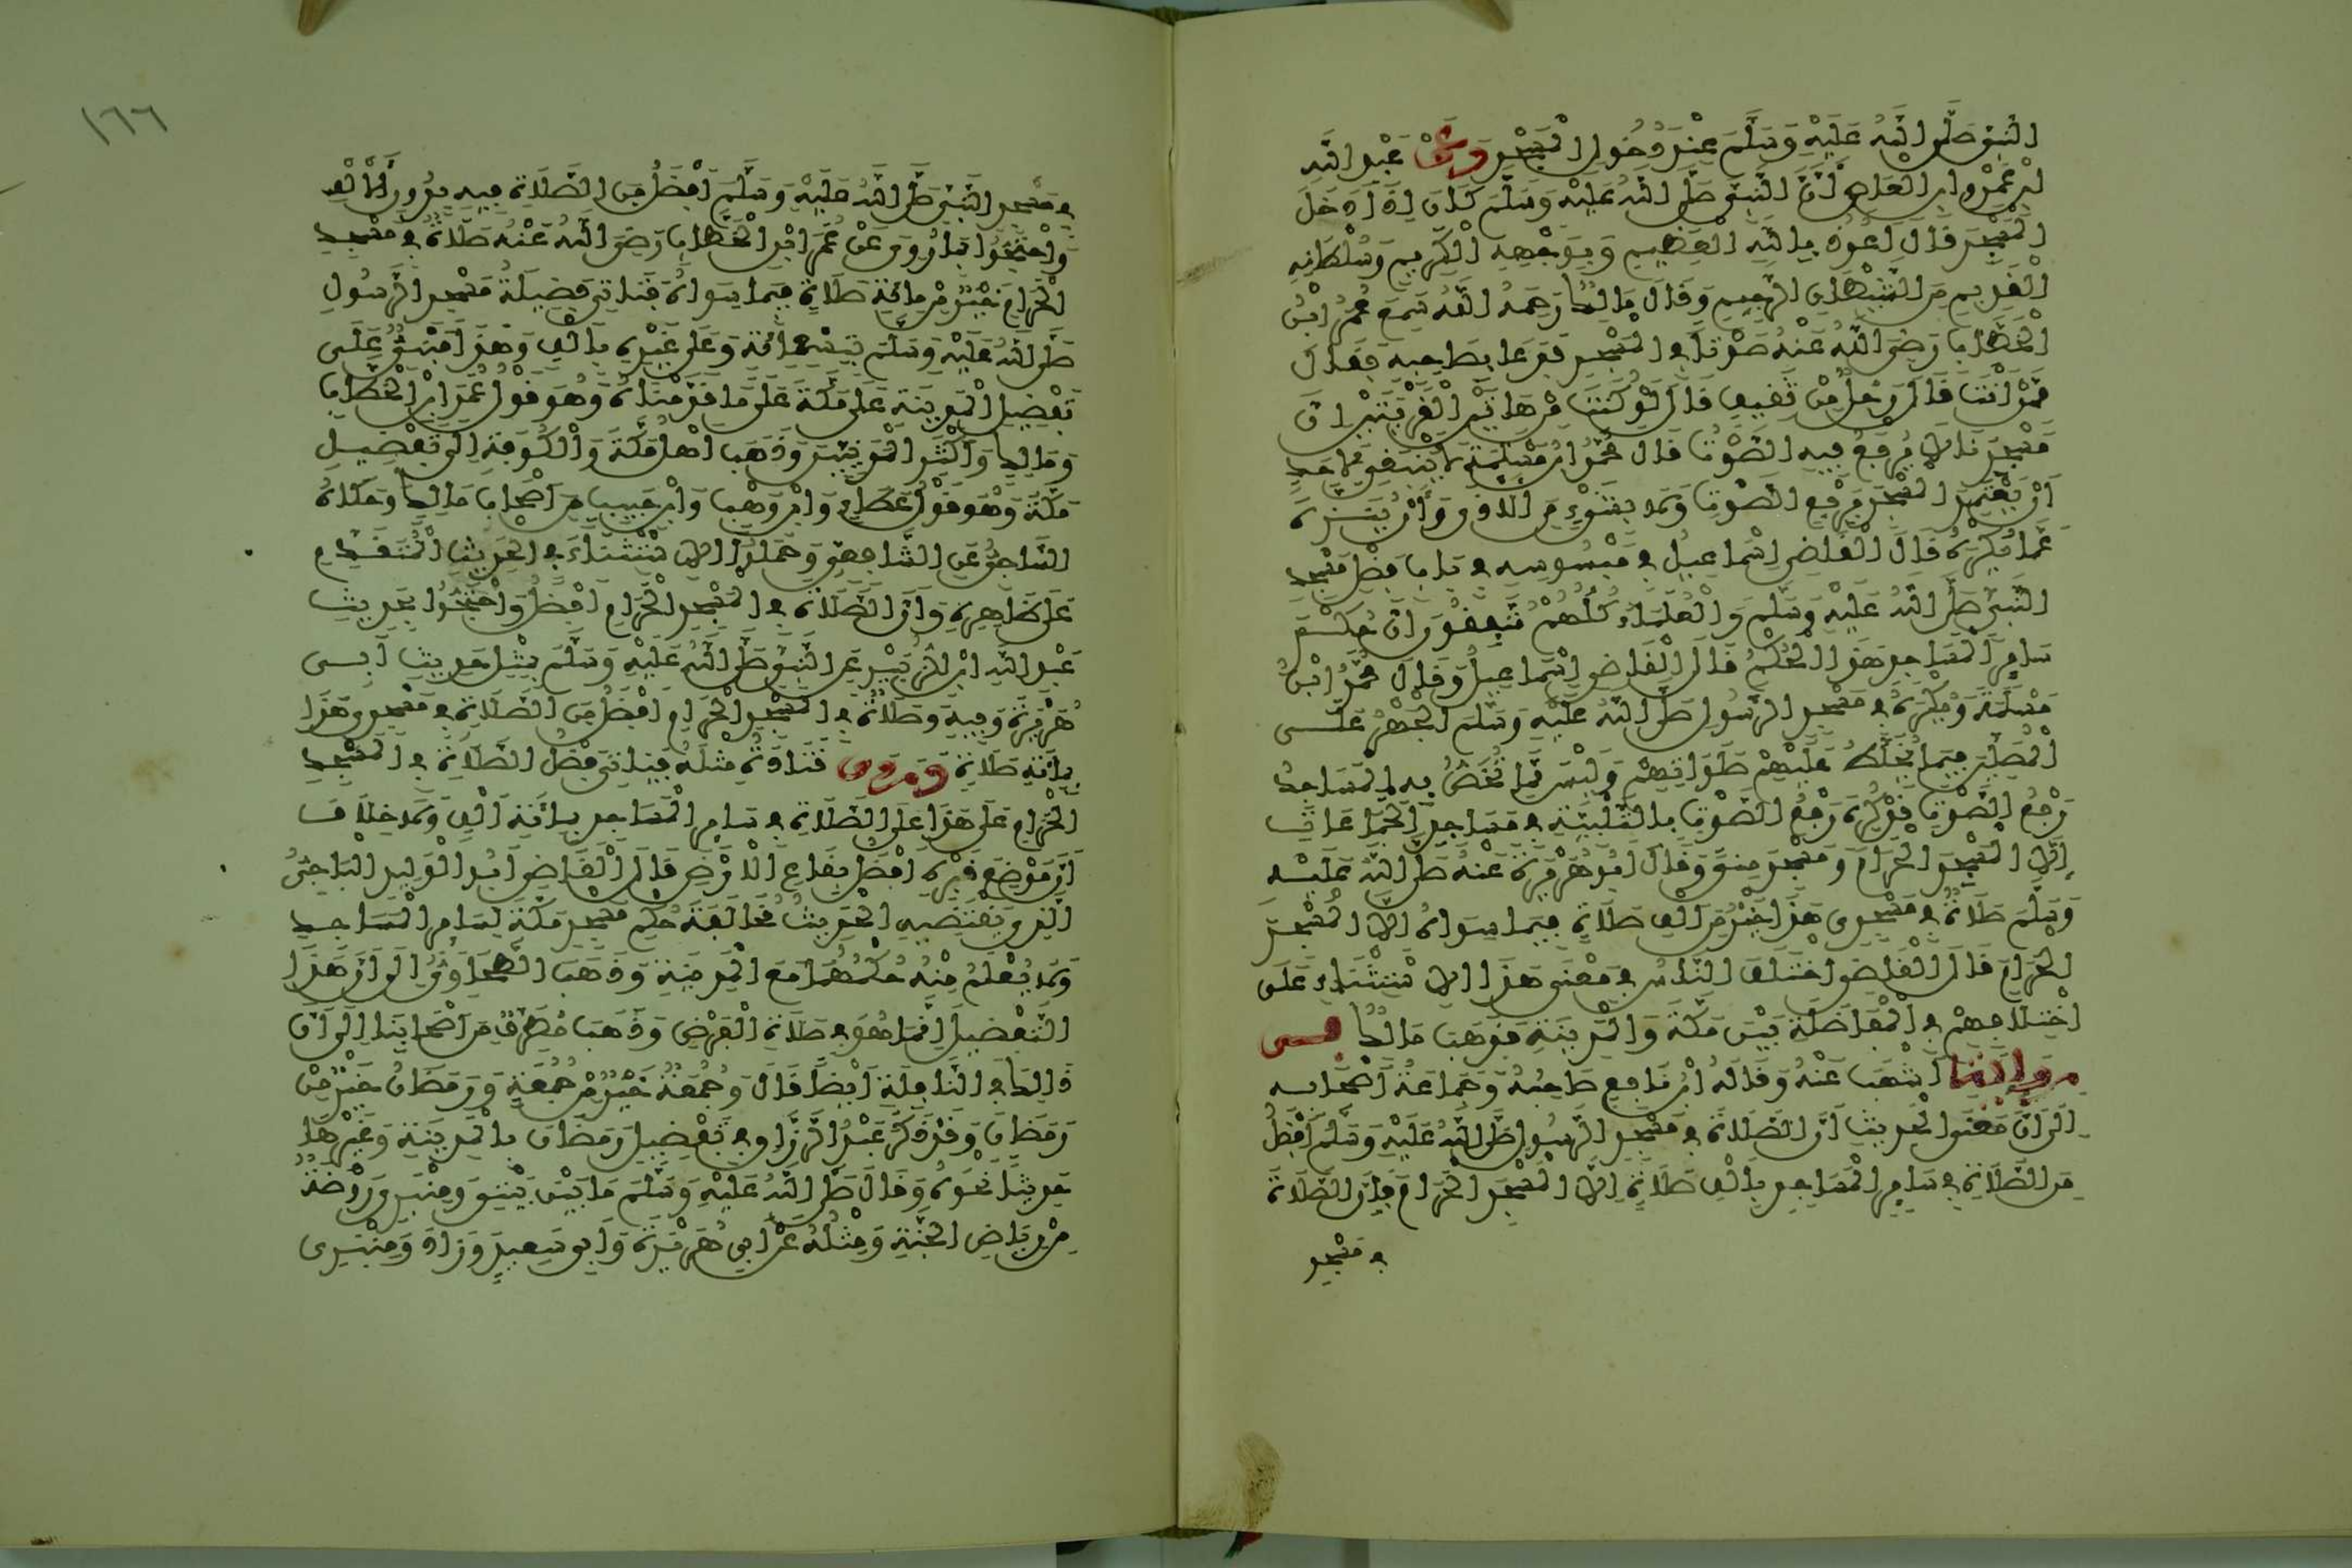 النَّبِيّ صَلَّى اللهُ عَلَيْهِ وَسَلَّمَ عِنْدَ دُخُولِ الْمَسْجِدِ وَعَنْ عَبْدِ اللهِ
ابْنِ عَمْرِو ابْنِ الْعَاصِ أَنَّ النَّبِيَّ صَلَّى اللهُ عَلَيْهِ وَسَلَّمَ كَانَ إِذَا دَخَلَ
الْمَسْجِدَ قَالَ أَعُوذُ بِاللهِ الْعَظِيمِ وَبِوَجْهِهِ الْكَرِيمِ وَسُلْطَانِهِ
الْقَدِيمِ مِنَ الشَّيْطَانِ الرَّجِيمِ وَقَالَ مَالِكٌ رَحِمَهُ اللهُ سَمِعَ عُمَرُ ابْنُ
الْخَطَّابِ رَضِيَ اللهُ عَنْهُ صَوْتًا فِي الْمَسْجِدِ فَدَعَا بِصَاحِبِهِ فَقَالَ
مِمَّنْ أَنْتَ قَالَ رَجُلٌ مِنْ ثَقِيفٍ قَالَ لَوْ كُنْتَ مِنْ هَاتَيْنِ الْقَرْيَتَيْنِ إِنَّ
مَسْجِدَنَا لَا يُرْفَعُ فِيهِ الصَّوْتُ قَالَ مُحَمَّدُ ابْنُ مَسْلَمَةَ لَا يَنْبَغِي لِأَحَدٍ
أَنْ يَعْتَمِدَ الْمَسْجِدَ بِرَفْعِ الصَّوْتِ وَلَا بِشَيْءٍ مِنَ الْأَذَى وَأَنْ يُنَزِّهَ
عَمَّا يُكْرَهُ قَالَ الْقَاضِي إِسْمَاعِيلُ فِي مَبْسُوطِهِ فِي بَابِ فَضْلِ مَسْجِدِ
النَّبِيّ صَلَّى اللهُ عَلَيْهِ وَسَلَّمَ وَالْعُلَمَاءُ كُلُّهُمْ مُتَّفِقُونَ أَنَّ حُكْمَ
سَائِرِ الْمَسَاجِدِ هَذَا الْحُكْمُ قَالَ الْقَاضِي إِسْمَاعِيلُ وَقَالَ مُحَمَّدُ ابْنُ
مَسْلَمَةَ وَيُكْرَهُ فِي مَسْجِدِ الرَّسُولِ صَلَّى اللهُ عَلَيْهِ وَسَلَّمَ الْجَهْرُ عَلَى
الْمُصَلِّينَ فِيمَا يُخَلِّطُ عَلَيْهِمْ صَلَوَاتِهِمْ وَلَيْسَ مِمَّا تُخَصُّ بِهِ الْمَسَاجِدُ
رَفْعُ الصَّوْتِ قَدْ كُرِهَ رَفْعُ الصَّوْتِ بِالتَّلْبِيَةِ فِي مَسَاجِدِ الْجَمَاعَاتِ
إِلَّا الْمَسْجِدَ الْحَرَامَ وَمَسْجِدَ مِنًى وَقَالَ أَبُو هُرَيْرَةَ عَنْهُ صَلَّى اللهُ عَلَيْهِ
وَسَلَّمَ صَلَاةٌ فِي مَسْجِدِي هَذَا خَيْرٌ مِنْ أَلْفِ صَلَاةٍ فِيمَا سِوَاهُ إِلَّا الْمَسْجِدَ
الْحَرَامَ قَالَ الْقَاضِي اخْتَلَفَ النَّاسُ فِي مَعْنَى هَذَا الِاسْتِثْنَاءِ عَلَى
اخْتِلَافِهِمْ فِي الْمُفَاضَلَةِ بَيْنَ مَكَّةَ وَالْمَدِينَةِ فَذَهَبَ مَالِكٌ فِي
رِوَايَةِ أَشْهَبَ عَنْهُ وَقَالَهُ ابْنُ نَافِعٍ صَاحِبُهُ وَجَمَاعَةُ أَصْحَابِهِ
إِلَى أَنَّ مَعْنَى الْحَدِيثِ أَنَّ الصَّلَاةَ فِي مَسْجِدِ الرَّسُولِ صَلَّى اللهُ عَلَيْهِ وَسَلَّمَ أَفْضَلُ
مِنَ الصَّلَاةِ فِي سَائِرِ الْمَسَاجِدِ بِأَلْفِ صَلَاةٍ إِلَّا الْمَسْجِدَ الْحَرَامَ فَإِنَّ الصَّلَاةَ
فِي مَسْجِدِ
١٦٦
فِي مَسْجِدِ النَّبِيِّ صَلَّى اللهُ عَلَيْهِ وَسَلَّمَ أَفْضَلُ مِنَ الصَّلَاةِ فِيهِ بِدُونِ الْأَلْفِ
وَاحْتَجُّوا بِمَا رُوِيَ عَنْ عُمَرَ ابْنِ الْخَطَّابِ رَضِيَ اللهُ عَنْهُ صَلَاةٌ فِي مَسْجِدِ
الْحَرَامِ خَيْرٌ مِنْ مِائَةِ صَلَاةٍ فِيمَا سِوَاهُ فَتَأْتِي فَضِيلَةُ مَسْجِدِ الرَّسُولِ
صَلَّى اللهُ عَلَيْهِ وَسَلَّمَ بِتِسْعِمِائَةٍ وَعَلَى غَيْرِهِ بِأَلْفٍ وَهَذَا مَبْنِيٌّ عَلَى
تَفْضِيلِ الْمَدِينَةِ عَلَى مَكَّةَ عَلَى مَا قَدَّمْنَاهُ وَهُوَ قَوْلُ عُمَرَ ابْنِ الْخَطَّابِ
وَمَالِكٍ وَأَكْثَرِ الْمَدَنِيِّينَ وَذَهَبَ أَهْلُ مَكَّةَ وَالْكُوفَةِ إِلَى تَفْضِيلِ
مَكَّةَ وَهُوَ قَوْلُ عَطَاءٍ وَابْنِ وَهْبٍ وَابْنِ حَبِيبٍ مِنْ أَصْحَابِ مَالِكٍ وَحَكَاهُ
السَّاجِيُّ عَنِ الشَّافِعِيِّ وَحَمَلُوا الِاسْتِثْنَاءَ فِي الْحَدِيثِ الْمُتَقَدِّمِ
عَلَى ظَاهِرِهِ وَأَنَّ الصَّلَاةَ فِي الْمَسْجِدِ الْحَرَامِ أَفْضَلُ وَاحْتَجُّوا بِحَدِيثِ
عَبْدِ اللهِ ابْنِ الزُّبَيْرِ عَنِ النَّبِيِّ صَلَّى اللهُ عَلَيْهِ وَسَلَّمَ بِمِثْلِ حَدِيثِ أَبِي
هُرَيْرَةَ وَفِيهِ وَصَلَاةٌ فِي الْمَسْجِدِ الْحَرَامِ أَفْضَلُ مِنَ الصَّلَاةِ فِي مَسْجِدِي هَذَا
بِمِائَةِ صَلَاةٍ وَرَوَى قَتَادَةُ مِثْلَهُ فَيَأْتِي فَضْلُ الصَّلَاةِ فِي الْمَسْجِدِ
الْحَرَامِ عَلَى هَذَا عَلَى الصَّلَاةِ فِي سَائِرِ الْمَسَاجِدِ بِمِائَةِ أَلْفٍ وَلَا خِلَافَ
أَنَّ مَوْضِعَ قَبْرِهِ أَفْضَلُ بِقَاعِ الْأَرْضِ قَالَ الْقَاضِي أَبُو الْوَلِيدِ الْبَاجِيُّ
الَّذِي يَقْتَضِيهِ الْحَدِيثُ مُخَالَفَةُ حُكْمِ مَسْجِدِ مَكَّةَ لِسَائِرِ الْمَسَاجِدِ
وَلَا يُعْلَمُ مِنْهُ حُكْمُهُمَا مَعَ الْمَدِينَةِ وَذَهَبَ الطَّحَاوِيُّ إِلَى أَنَّ هَذَا
التَّفْضِيلَ إِنَّمَا هُوَ فِي صَلَاةِ الْفَرْضِ وَذَهَبَ مُطَرِّفٌ مِنْ أَصْحَابِنَا إِلَى أَنَّ
ذَلِكَ فِي النَّافِلَةِ أَيْضًا قَالَ وَجُمُعَةٌ خَيْرٌ مِنْ جُمُعَةٍ وَرَمَضَانُ خَيْرٌ مِنْ
رَمَضَانَ وَقَدْ ذَكَرَ عَبْدُ الرَّزَّاقِ فِي تَفْضِيلِ رَمَضَانَ بِالْمَدِينَةِ وَغَيْرِهَا
حَدِيثًا نَحْوَهُ وَقَالَ صَلَّى اللهُ عَلَيْهِ وَسَلَّمَ مَا بَيْنَ بَيْتِي وَمِنْبَرِي رَوْضَةٌ
مِنْ رِيَاضِ الْجَنَّةِ وَمِثْلُهُ عَنْ أَبِي هُرَيْرَةَ وَأَبِي سَعِيدٍ وَزَادَ وَمِنْبَرِي